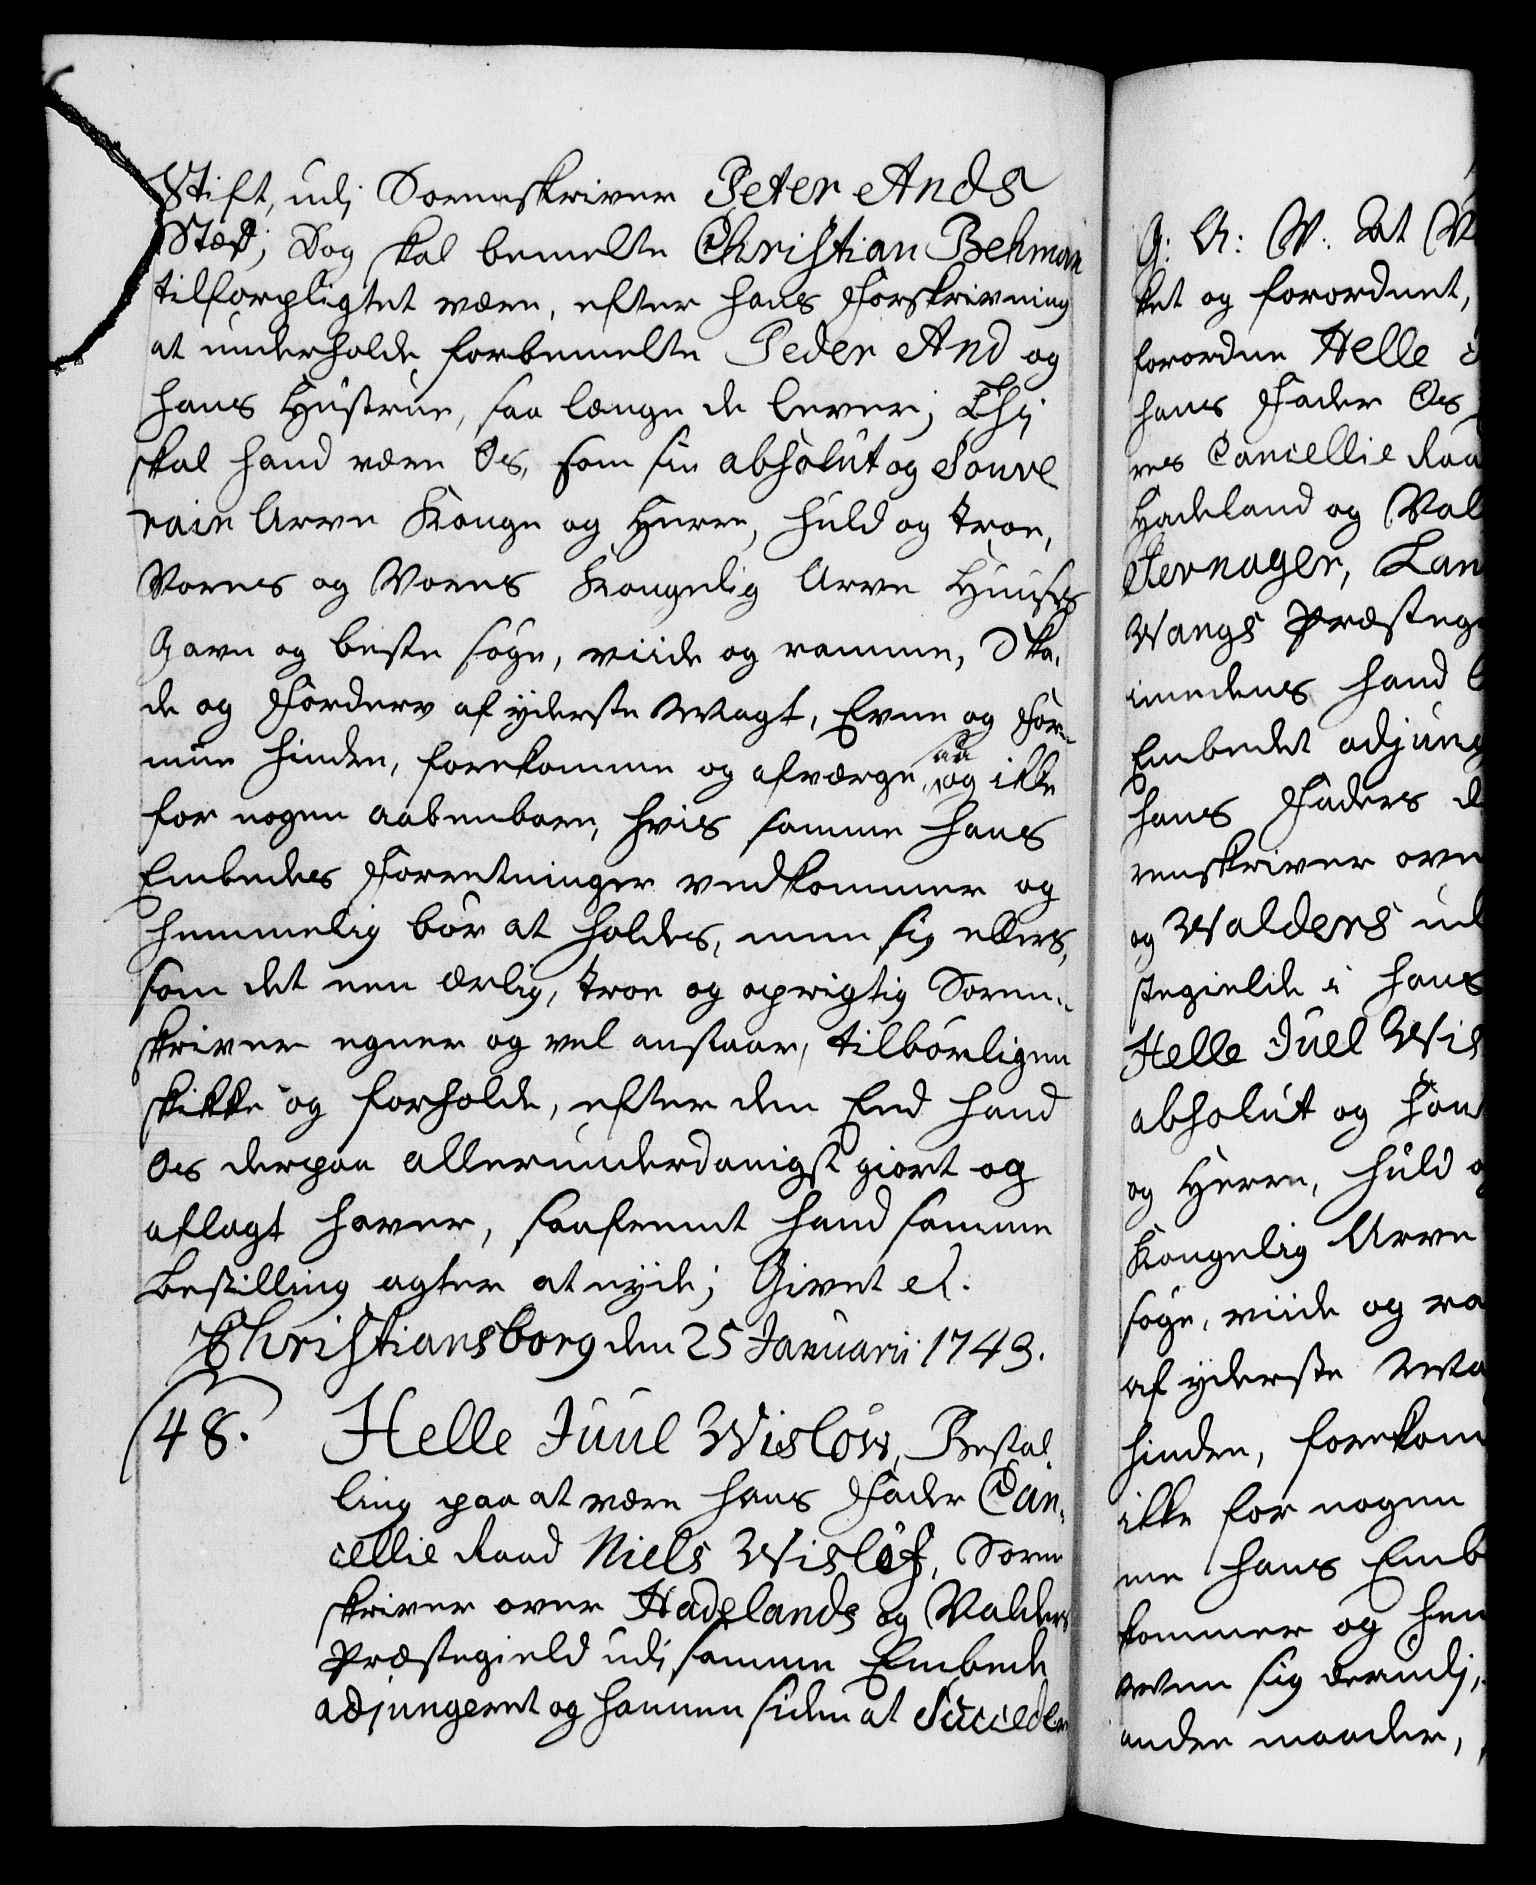 Stift, udj Sorenskriver Peter Ands
Stæd; Dog skal bemelte Christian Behman
tilforpligtet være, efter hans Forskrivning
at underholde forbemelte Peder And og
hans Hustrue, saa længe de lever; Thj
skal hand være Os, som sin absolut og Souve
rain Arve Konge og Herre, huld og troe,
Vores og Vores Kongelig Arve Huuses
Gavn og beste søge, viide og ramme, Ska-
de og Forderv af yderste Magt, Evne og For-
mue hindre, forekomme og afværge, og
saa
ikke
for nogen aabenbare, hvis samme hans
Embedes Forretninger vedkommer og
hemmelig bør at holdes, men sig ellers,
som det een ærlig, troe og oprigtig Soren-
skriver egner og vel anstaar, tilbørligen
skikke og forholde, efter den Eed hand
Os derpaa allerunderdanigst giort og
aflagt haver, saafremt hand samme
bestilling agter at nyde; Givet et.
Christiansborg den 25 Januarii 1743.
48. Helle Juul Wisløw, Bestal
ling paa at være hans Fader Can-
cellie Raad Niels Wisløf, Soren
skriver over Hadelands og Valders
Præstegield udj samme Embede
adjungeret og hannem siden at Succeder
G: A: W: At V
ket og forordnet,
forordne Helle J
hans Fader Os
res Cancellie Raa
Hadeland og Val
Jernager, Lan
Wangs Præsteg
imedens hand
Embedet adjung
hans Faders d
renskriver ove
og Walders ud
stegielde i hans
Helle Juel Wis
absolut og sou
og Herre, huld o
Kongelig Arve
søge, viide og ra
af yderste Ma
hindre, forekom
ikke for nogen
me hans Emb
kommer og hem
Men sig derudj,
andre maader,